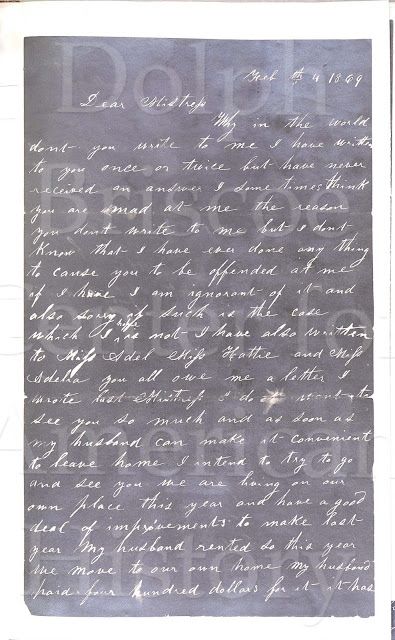 Feb th 4 1869
Dear Mistress
Why in the world
dont you write to me I have written
to you once or twice but have never
received an answer I some times think
you are mad at me the reason
you dont write to me but I dont
know that I have ever done any thing
to cause you to be offended at me
if I have I am ignorant of it and
also sorry if such is the case
which I hope is not I have also written
to Miss Adel Miss Hattie and Miss
Adelia you all owe me a letter I
wrote last Mistress I do want to
see you so much and as soon as
my husband can make it convenient
to leave home I intend to try to go
and see you we are living on our
own place this year and have a good
deal of improvements to make last
year My husband rented so this year
we move to our own home my husband
paid four hundred dollars for it it has
Dolph
Briscoe
Center for
American
History